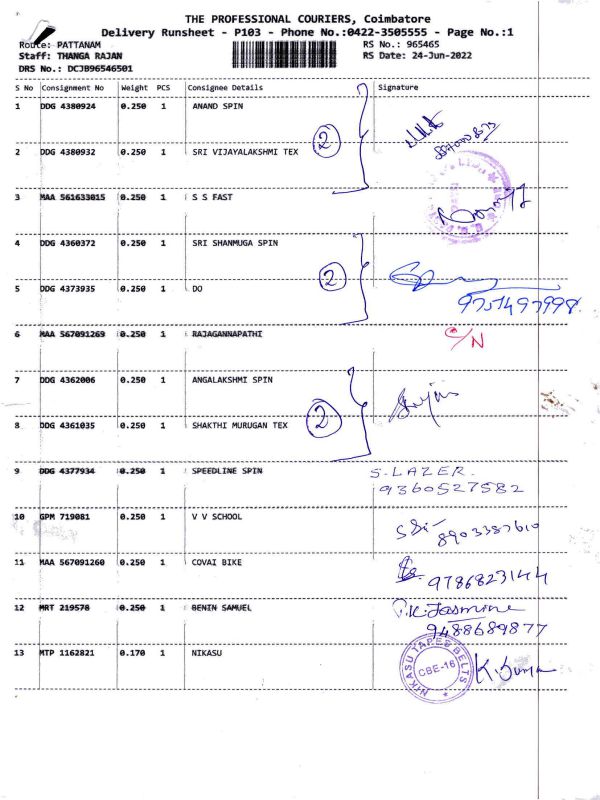 THE PROFESSIONAL COURIERS, Coimbatore
Delivery Runsheet - P103 - Phone No.:0422-3505555 - Page No.:1
Route: PATTANAM RS No.: 965465
Staff: THANGA RAJAN RS Date: 24-Jun-2022
DRS No.: DCJB96546501
S No Consignment No Weight PCS Consignee Details Signature
1 DDG 4380924 0.250 1 ANAND SPIN
2
2 DDG 4380932 0.250 1 SRI VIJAYALAKSHMI TEX
3 MAA 561633015 0.250 1 S S FAST
4 DDG 4360372 0.250 1 SRI SHANMUGA SPIN
2
5 DDG 4373935 0.250 1 DO
9751497998.
6 MAA 567091269 0.250 1 RAJAGANNAPATHI C/N
7 DDG 4362006 0.250 1 ANGALAKSHMI SPIN
2
8 DDG 4361035 0.250 1 SHAKTHI MURUGAN TEX
9 DDG 4377934 0.250 1 SPEEDLINE SPIN S. LAZER.
9360527582
10 GPM 719081 0.250 1 V V SCHOOL
8903387610
11 MAA 567091260 0.250 1 COVAI BIKE
9786823144
12 MRT 219578 0.250 1 BENIN SAMUEL P.K. Jasmine
9488689877
13 MTP 1162821 0.170 1 NIKASU
NIKASU TAPES BELTS
CBE-16